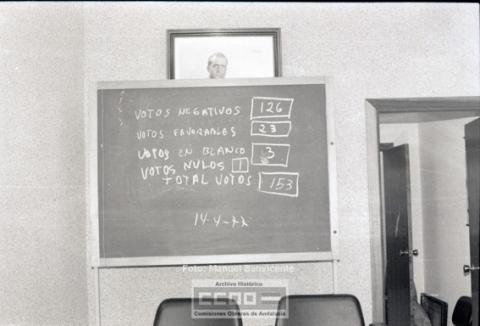 VOTOS NEGATIVOS 126
VOTOS FAVORABLES 23
VOTOS EN BLANCO 3
VOTOS NULOS 1
TOTAL VOTOS 153
14-4-77
Foto: Manuel Sanvicente
Archivo Histórico
CCOO
Comisiones Obreras de Andalucía